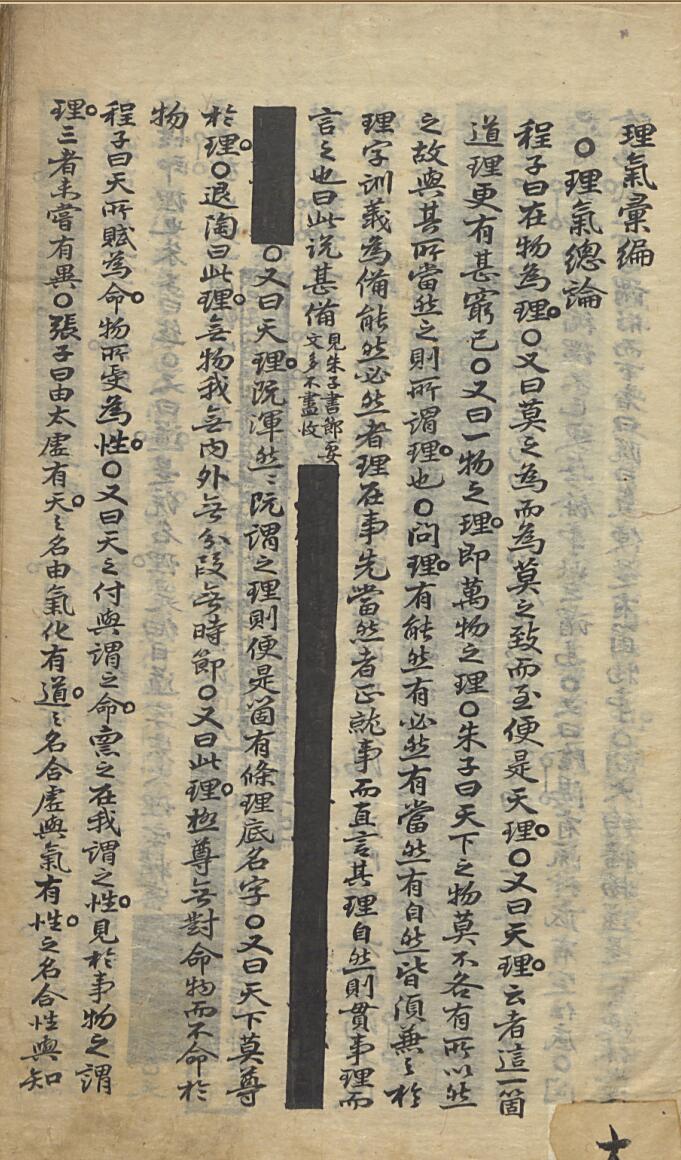 理氣彙編
○理氣總論
程子曰在物為理○又曰莫之為而為莫之致而至便是天理○又曰天理云者這一箇
道理更有甚窮已○又曰一物之理即萬物之理○朱子曰天下之物莫不各有所以然
之故與其所當然之則所謂理也○問理有能然有必然有當然有自然皆須兼之於
理字訓義為備能然必然者理在事先當然者正就事而直言其理自然則貫事理而
言之也曰此說甚備見朱子書節要文多不盡收
○又曰天理既渾然〻既謂之理則便是箇有條理底名字○又曰天下莫尊
於理○退陶曰此理無物我無內外無分段無時節○又曰此理極尊無對命物而不命於
物
程子曰天所賦為命物所受為性○又曰天之付與謂之命稟之在我謂之性見於事物之謂
理三者未嘗有異○張子曰由太虛有天〻名由氣化有道〻名合虛與氣有性之名合性與知